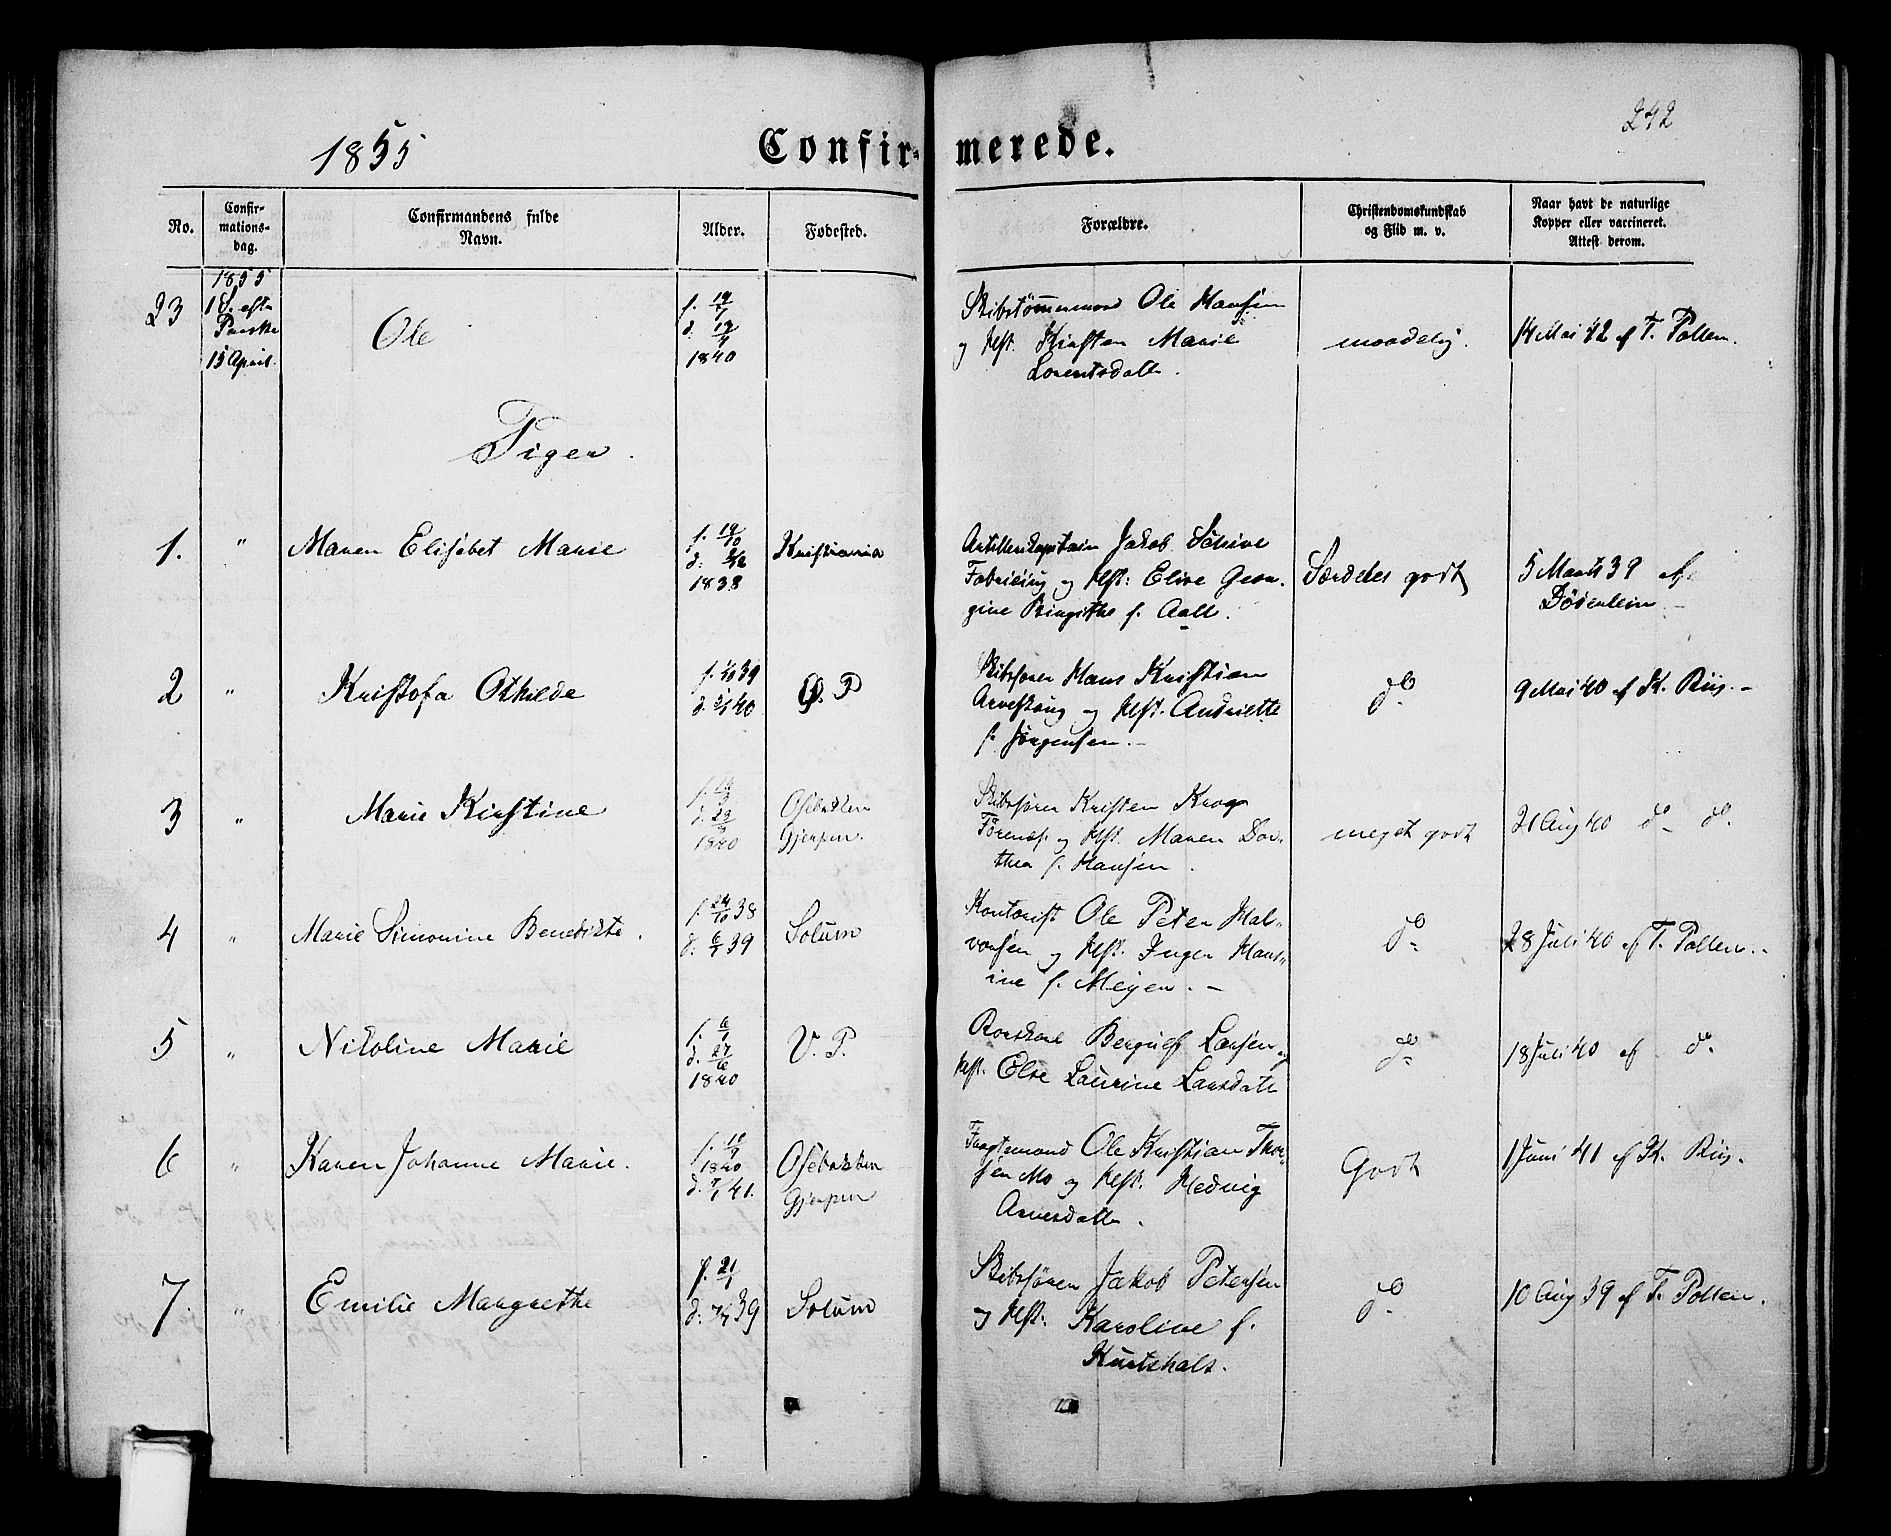 1855
Confir-
merede.
242
No.
Confir-
mations-
dag.
Confirmandens fulde
Navn.
Alder.
Fødested.
Forældre.
Christendomskundskab
og Flid m. v.
Naar havt de naturlige
Kopper eller vaccineret.
Attest derom.
23
1855
1 S. efter
Paaske
15 April.
Ole
1840
Skibstømmermand Ole Hansen
og Hst. Kirsten Marie
Lorentsdatter.
maadelig.
14 Mai 42 af T. Pollen.
Piger.
1.
"
Maren Elisabet Marie
f. 19/10
d. 2/12
1838
Kristiania
Artillerikapitain Jakob Schive
og Hst: Elise Geor-
gine Birgithe f. Aall.
Særdeles godt
5 Marts 39 af
2
"
Kristofa Othilde
f. 1/10 39
d. 2/1 40
Ø. P
Skibsfører Hans Kristian
og Hst. Andriette
f. Jørgensen.-
do
9 Mai 40 af K. Riis.-
3
"
Marie Kirstine
1840
Osebakken
Gjerpen.
Skibsfører Kristen Krog
og Hst. Maren Dor-
thea f. Hansen.
meget godt
21 Aug 40 do do.
4
"
Marie Simonine Benedikte.
f. 24/10 38
d. 6/1 39
Solum
Kontorist Ole Peter Hal-
vorsen og Hst. Inger Hans-
ine f. Meyer.-
do
28 Juli 40 af T. Pollen.-
5
"
Nikoline Marie
1840
V. P.
Larsen og
Hst. Else Laurine Larsdatter
do
18 Juli 40 af do.
6
"
Karen Johanne Marie.
1840
d. 7/1 41.
Osebakken
Gjerpen
Ole Kristian Thor-
sen Mo og Hst. Hedvig
Arnesdatter.
Godt
1 Juni 41 af K. Riis.
7.
"
Emilie Margrethe
f. 21/1
39
Solum
Skibsfører Jakob Petersen
og Hst. Karoline f.
do
10 Aug 39 af T. Pollen.